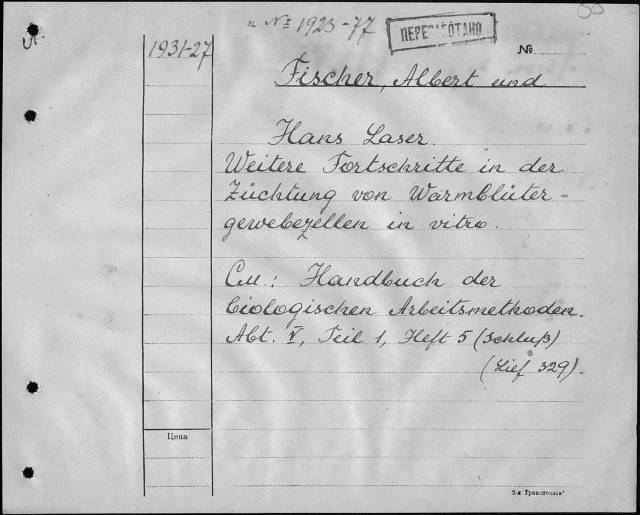 к № 1923-77
ПЕРЕРАБОТАНО
1931-27
№
Fischer, Albert und
Hans Laser.
Weitere Fortschritte in der
Züchtung von Warmblüter-
gewebezellen in vitro.
См.: Handbuch der
biologischen Arbeitsmethoden.
Abt. V, Teil 1, Heft 5 (Schluß)
(Lief 329).
Цена